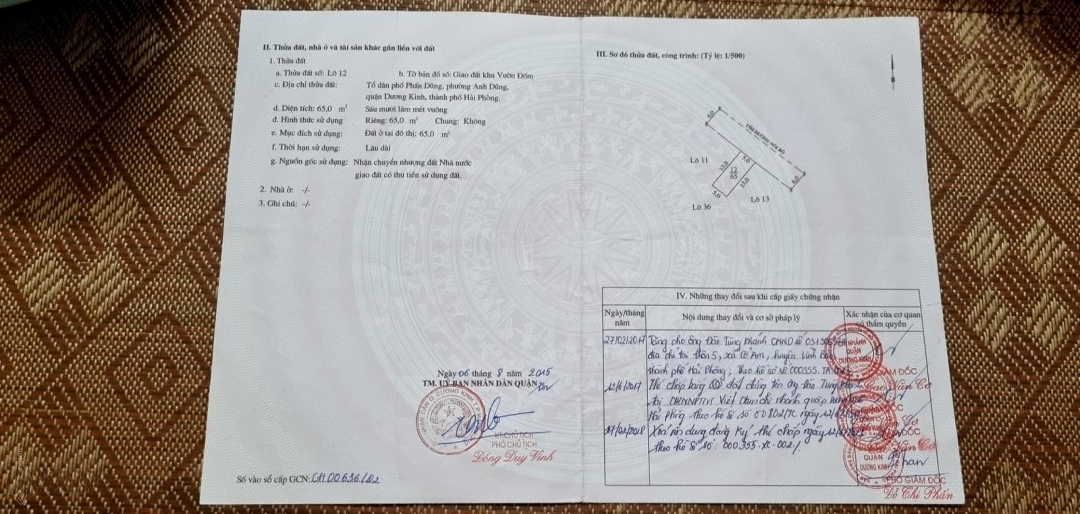 II. Thửa đất, nhà ở và tài sản khác gắn liền với đất
1. Thửa đất
a. Thửa đất số: Lô 12 b. Tờ bản đồ số: Giao đất khu Vườn Đốm
c. Địa chỉ thửa đất: Tổ dân phố Phấn Dũng, phường Anh Dũng,
quận Dương Kinh, thành phố Hải Phòng.
d. Diện tích: 65,0 m² Sáu mươi lăm mét vuông
đ. Hình thức sử dụng Riêng: 65,0 m² Chung: Không
e. Mục đích sử dụng: Đất ở tại đô thị: 65,0 m²
f. Thời hạn sử dụng: Lâu dài
g. Nguồn gốc sử dụng: Nhận chuyển nhượng đất Nhà nước
giao đất có thu tiền sử dụng đất.
2. Nhà ở: -/-
3. Ghi chú: -/-
Ngày 06 tháng 8 năm 2015
TM. UỶ BAN NHÂN DÂN QUẬN
KT.CHỦ TỊCH
PHÓ CHỦ TỊCH
Đồng Duy Vinh
Số vào sổ cấp GCN: CH.00.636
III. Sơ đồ thửa đất, công trình: (Tỷ lệ: 1/500)
5,0
TIM ĐƯỜNG NỘI BỘ
Lô 11
13,0
5,0
12
65
13,0
5,0
5,0
Lô 13
Lô 36
IV. Những thay đổi sau khi cấp giấy chứng nhận
Ngày/tháng năm
Nội dung thay đổi và cơ sở pháp lý
Xác nhận của cơ quan có thẩm quyền
27/02/2017 Tặng cho ông Đào Tùng Khánh CMND số
địa chỉ tại thôn 5, xã Cổ Am, huyện Vĩnh Bảo
thành phố Hải Phòng; Theo hồ sơ số 000355.
12/6/2017 Thế chấp bằng QSD đất đứng tên ông Đào Tùng
tại Việt Nam chi nhánh
Hải Phòng theo hồ sơ số ngày
Xoá nội dung đăng ký thế chấp ngày
theo hồ sơ số: 000355.
CHI NHÁNH
QUẬN
DƯƠNG KINH
GIÁM ĐỐC
QUẬN
DƯƠNG KINH
PHÓ GIÁM ĐỐC
Đỗ Thị Phấn